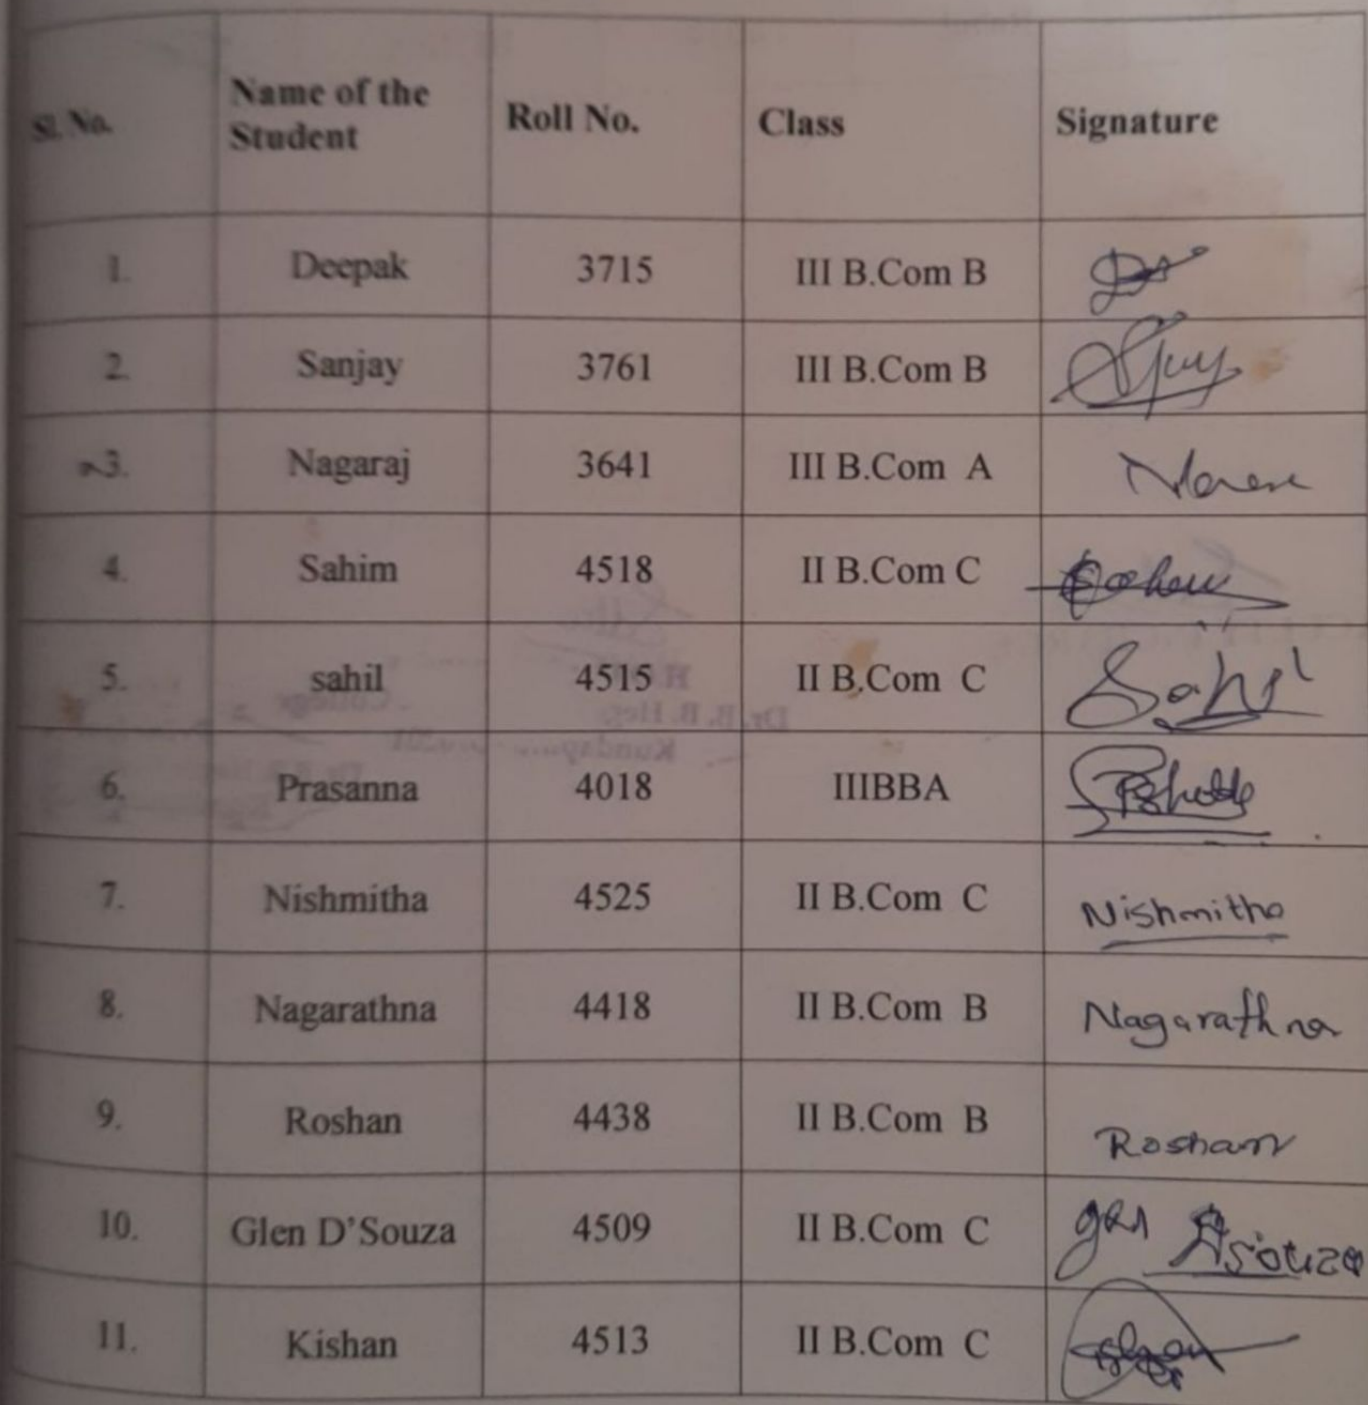 Sl. No. Name of the Student Roll No. Class Signature
1. Deepak 3715 III B.Com B
2. Sanjay 3761 III B.Com B
3. Nagaraj 3641 III B.Com A
4. Sahim 4518 II B.Com C
5. sahil 4515 II B.Com C Sahil
6. Prasanna 4018 IIIBBA
7. Nishmitha 4525 II B.Com C Nishmitha
8. Nagarathna 4418 II B.Com B Nagarathna
9. Roshan 4438 II B.Com B Roshan
10. Glen D'Souza 4509 II B.Com C
11. Kishan 4513 II B.Com C